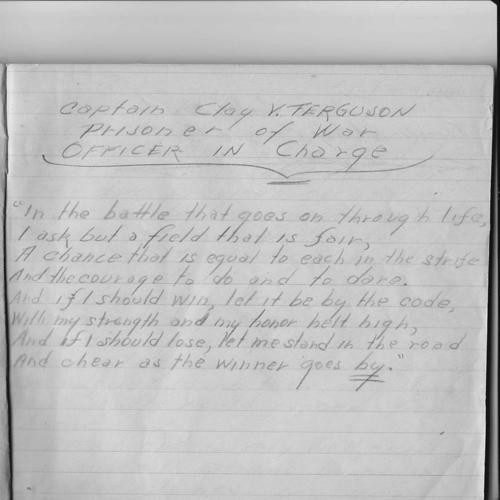 Captain Clay V. FERGUSON
Prisoner of War
OFFICER IN Charge
"In the battle that goes on through life,
I ask but a field that is fair,
A chance that is equal to each in the strife
And the courage to do and to dare.
And if I should win, let it be by the code,
With my strength and my honor helt high,
And if I should lose, let me stand in the road
And chear as the winner goes by."